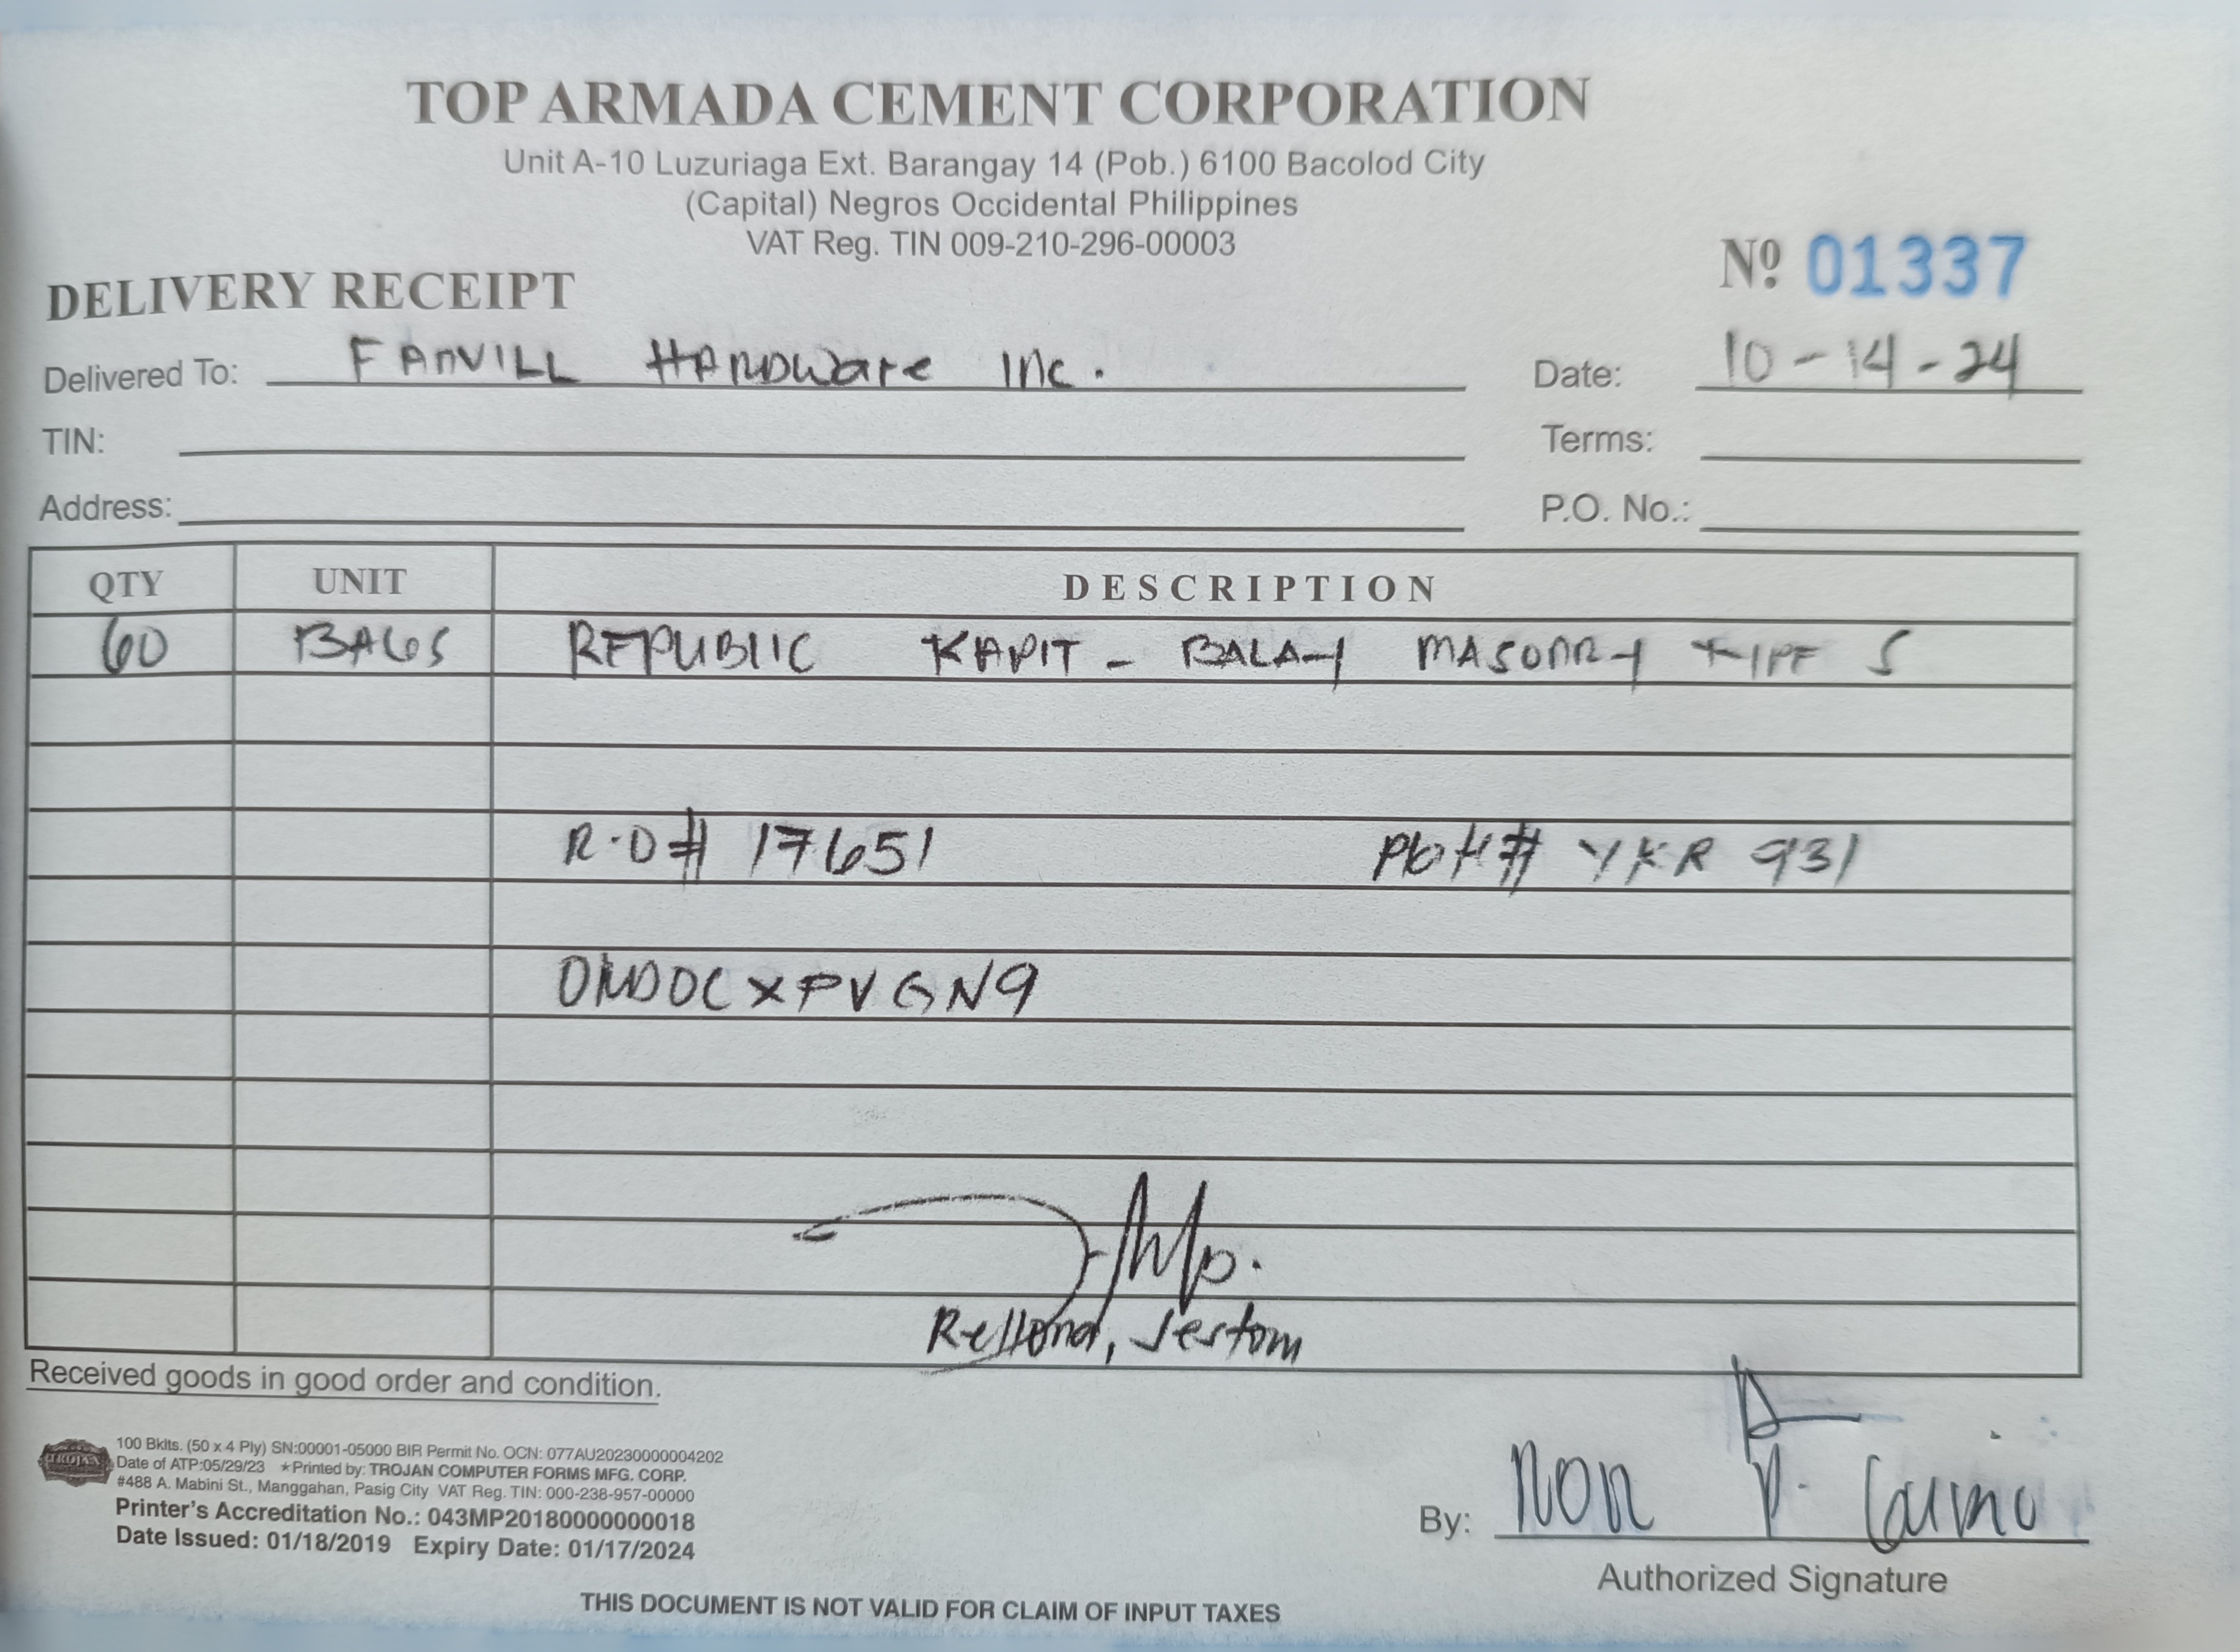 TOP ARMADA CEMENT CORPORATION
Unit A-10 Luzuriaga Ext. Barangay 14 (Pob.) 6100 Bacolod City
(Capital) Negros Occidental Philippines
VAT Reg. TIN 009-210-296-00003
DELIVERY RECEIPT
Nº 01337
Delivered To: FAMVILL HARDWare Inc.
Date: 10-14-24
TIN:
Terms:
Address:
P.O. No.:
QTY UNIT DESCRIPTION
60 BAGS REPUBLIC KAPIT-BALAY MASONRY TYPE S
R.O# 17651 YKR 931
Jestom
Received goods in good order and condition.
100 Bklts. (50 x 4 Ply) SN:00001-05000 BIR Permit No. OCN: 077AU20230000004202
Date of ATP:05/29/23 ★Printed by: TROJAN COMPUTER FORMS MFG. CORP.
TROJAN
#488 A. Mabini St., Manggahan, Pasig City VAT Reg. TIN: 000-238-957-00000
Printer's Accreditation No.: 043MP20180000000018
Date Issued: 01/18/2019 Expiry Date: 01/17/2024
By: NON P.
Authorized Signature
THIS DOCUMENT IS NOT VALID FOR CLAIM OF INPUT TAXES